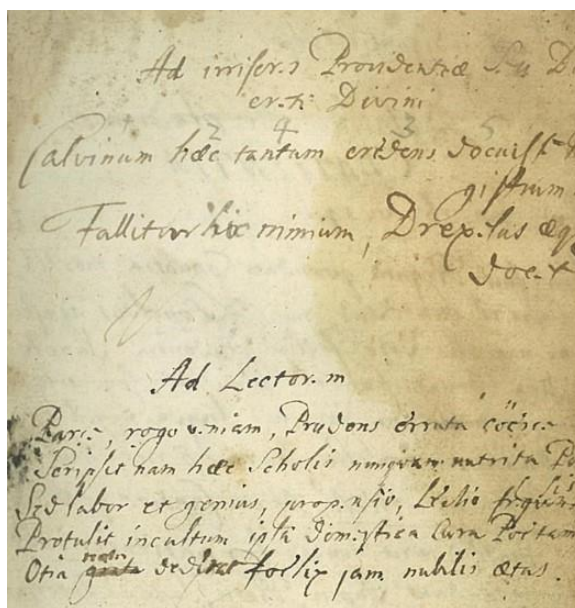 Ad irrisores Providentiæ
Divini
2 4 3 5
Calvinum hæc tantum credens docuisse
Fallitur hic nimium, Drexelius
docet
Ad Lectorem
Parce, rogo veniam, Prudens errata
Scripsit nam hæc Scholis nunquam nutrita
Sed labor et genius, propensio, Lectio
Protulit incultum ipsa Domestica Cura Poetam
Otia dedit foelix jam nubilis ætas.